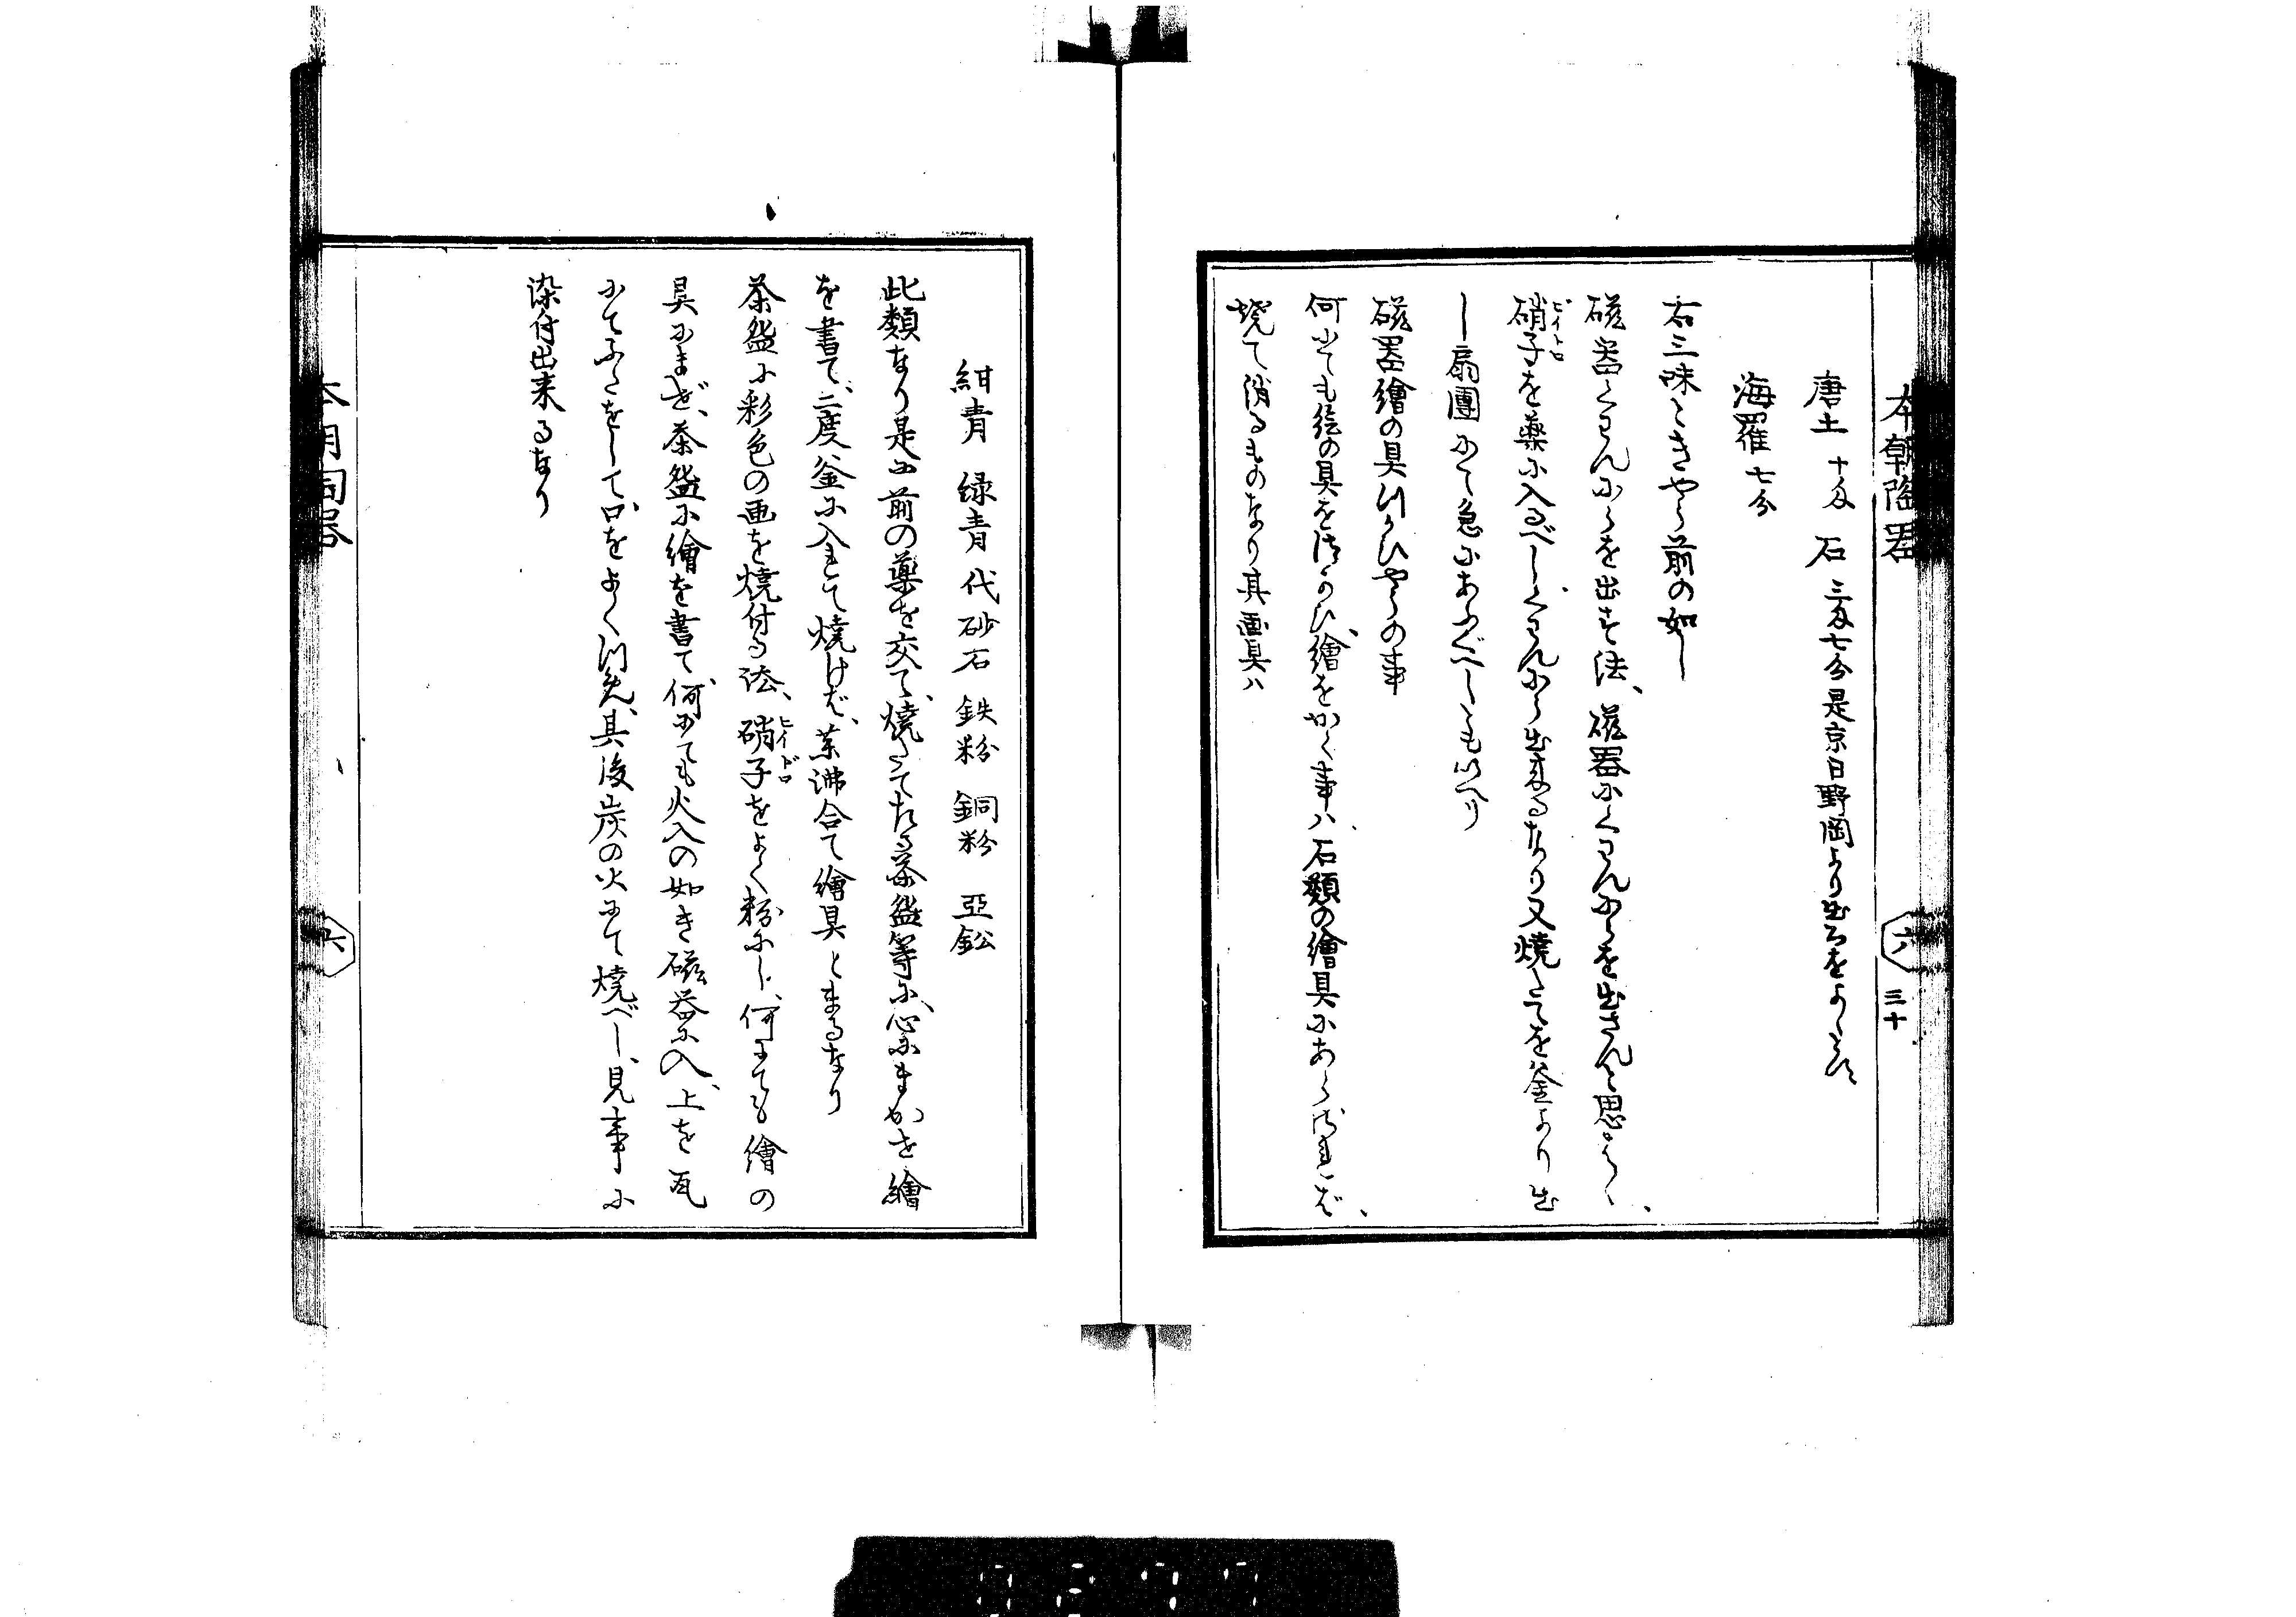 本朝陶器 六 三十
唐土 十匁 石 三匁七分是京日野岡より出る をよしとす
海羅 七分
右三味ときやう前の如し
磁器くわんにうを出す法、磁器にくわんにうを出さんと思はゝ、
硝子を薬に入るべしくわんにう出来るなり又焼たてを釜より出
ビイトロ
し扇團にて急にあふぐべしとも いへり
磁器繪の具つかひやうの事
何にても絵の具をつかひ、繪をかく事ハ、石類の繪具にあらざれば、
焼て消るものなり其画具ハ
紺青 緑青 代砂石 鉄粉 銅粉 亞鈆
此類なり是に前の薬を交て、焼たてたる茶盌等に、心にまかせ繪
を書て、二度釜に入れて焼けば、薬沸合て繪具とまるなり
茶盌に彩色の画を焼付る法、硝子をよく粉にし、何にても繪の
ヒイドロ
具にまぜ、茶盌に繪を書て、何にても火入の如き磁器に入、上を瓦
にてふたをして、口をよくつめ、其後炭の火にて焼べし、見事に
染付出来るなり
六